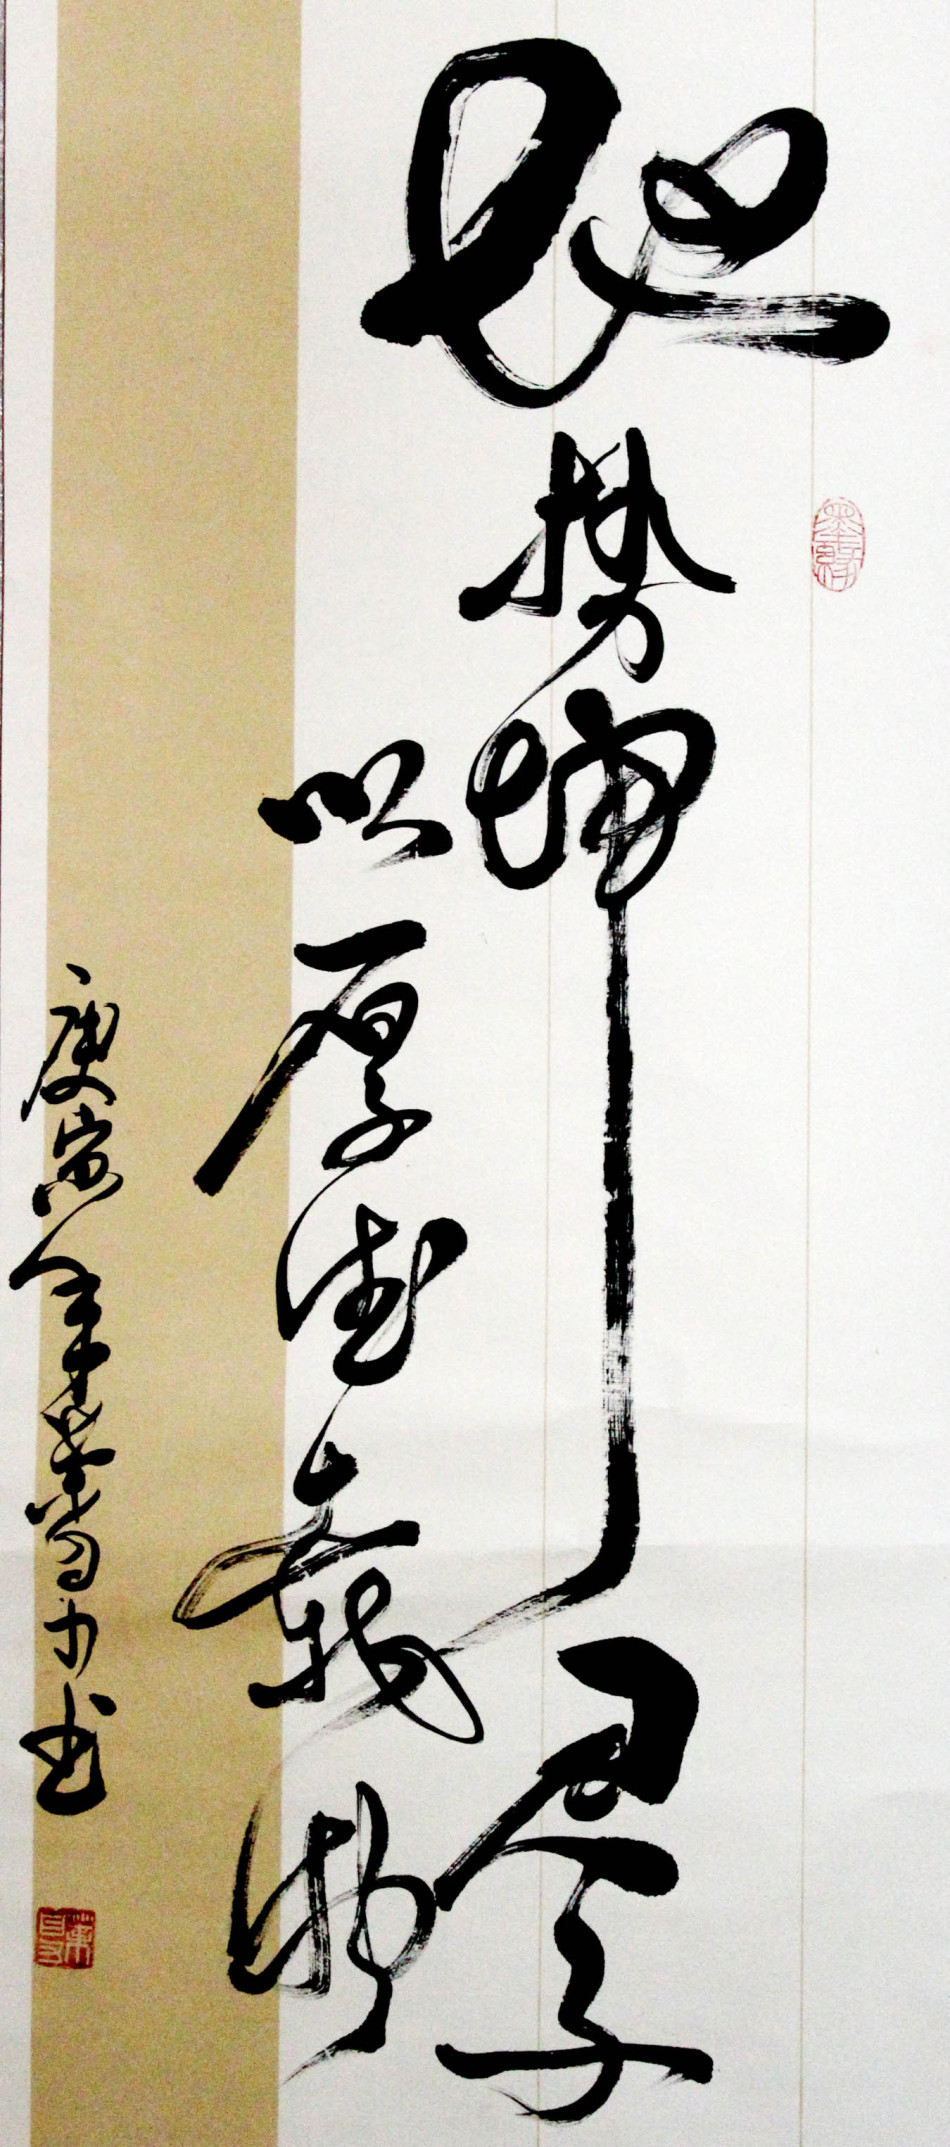 地势坤君子
以厚德载物
庚寅年葉自力书